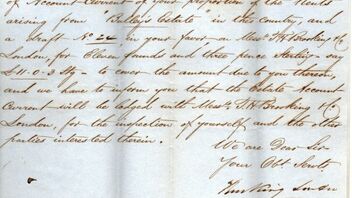 of Account Current of your proportion of the Rents
arising from "Bulley's Estate" in this country, and
a draft No 24 in your favor on Messrs T H Brooking & Co
London, for Eleven pounds and three pence Sterling - say
£11.0.3 Stg - to cover the amount due to you thereon,
and we have to inform you that the Estate Account
Current will be lodged with Messrs T H Brooking & Co
London, for the inspection of yourself and the other
parties interested therein.
We are Dear Sir
Your Obt. Servts